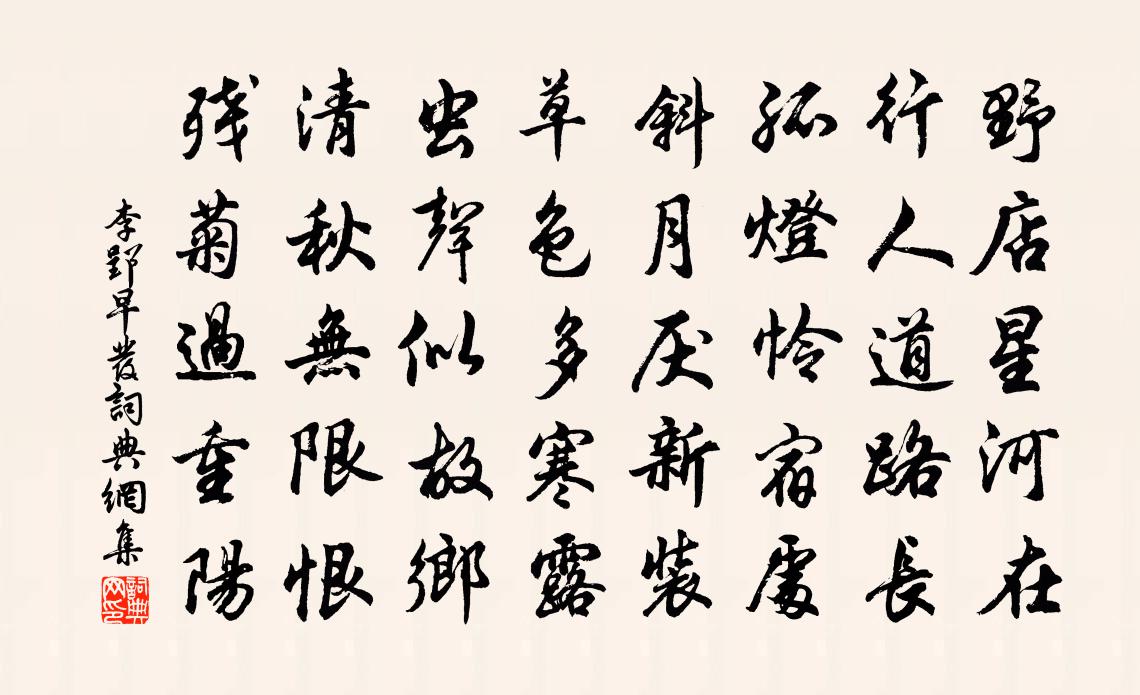 野店星河在
行人道路長
孤燈怜宿處
斜月厌新裝
草色多寒露
虫聲似故鄉
清秋無限恨
残菊過重陽
李郢早發詞典網集
詞典网印